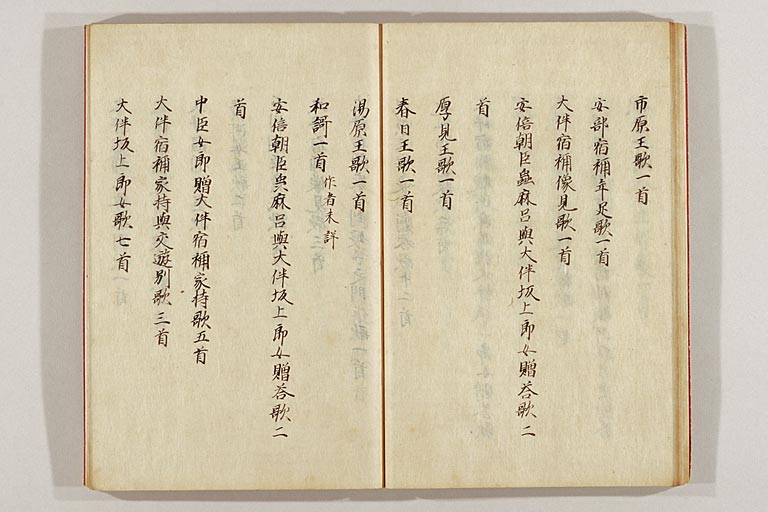 市原王歌一首
安部宿祢年足歌一首
大伴宿祢像見歌一首
安倍朝臣蟲麻呂與大伴坂上郎女贈荅歌二
首
厚見王歌一首
春日王歌一首
湯原王歌一首
和謌一首 作者未詳
安倍朝臣虫麻呂與大伴坂上郎女贈荅歌二
首
中臣女郎贈大伴宿祢家持歌五首
大伴宿祢家持與交遊別歌三首
大伴坂上郎女歌七首